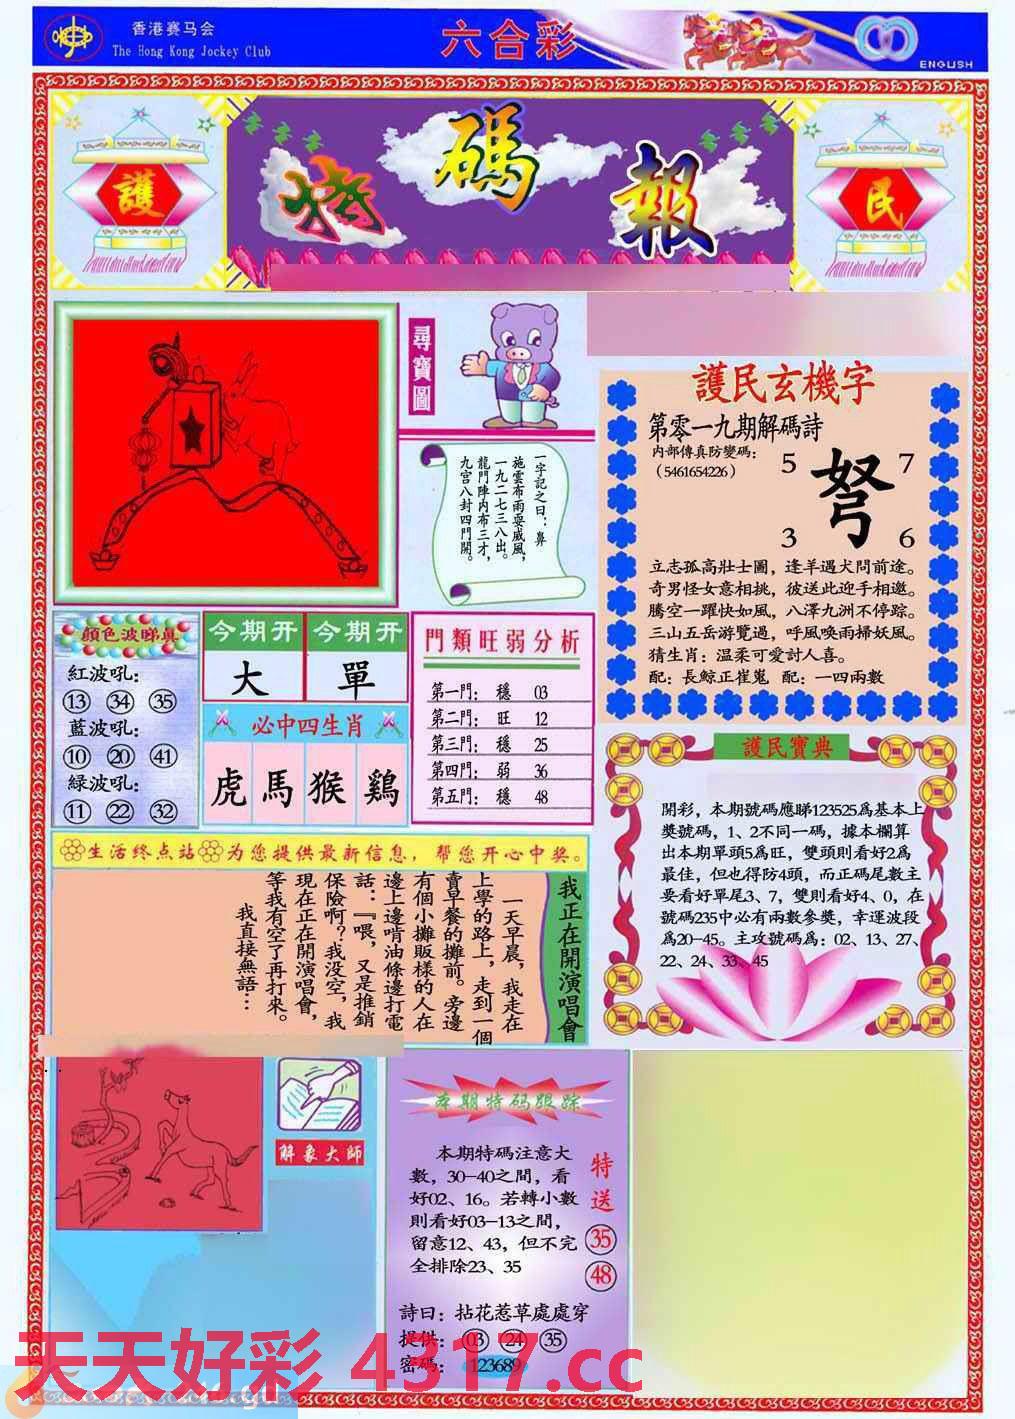 香港赛马会
The Hong Kong Jockey Club
六合彩
ENGLISH
護
特碼報
民
尋寶圖
一字記之曰：鼻
施雲布雨耍威風，
一九二七三八出。
龍門陣内布三才，
九宫八封四門開。
護民玄機字
第零一九期解碼詩
内部傳真防變碼：
（5461654226）
5 7
弩
3 6
立志孤高壯士圖，逢羊遇犬問前途。
奇男怪女意相挑，彼送此迎手相邀。
騰空一躍快如風，八澤九洲不停踪。
三山五岳游覽過，呼風唤雨掃妖風。
猜生肖：温柔可愛討人喜。
配：長鲸正崔嵬 配：一四兩數
顔色波睇真
紅波吼：
13 34 35
藍波吼：
10 20 41
緑波吼：
11 22 32
今期开 今期开
大 單
必中四生肖
虎 馬 猴 鷄
門類旺弱分析
第一門： 穩 03
第二門： 旺 12
第三門： 穩 25
第四門： 弱 36
第五門： 穩 48
護民寶典
開彩，本期號碼應睇123525爲基本上
獎號碼，1、2不同一碼，據本欄算
出本期單頭5爲旺，雙頭則看好2爲
最佳，但也得防4頭，而正碼尾數主
要看好單尾3、7，雙則看好4、0，在
號碼235中必有兩數參獎，幸運波段
爲20—45。主攻號碼爲：02、13、27、
22、24、33、45
生活终点站 为您提供最新信息，帮您开心中奖。
我正在開演唱會
一天早晨，我走在
上學的路上，走到一個
賣早餐的攤前。旁邊
有個小攤販樣的人在
邊上邊啃油條邊打電
話：『喂，又是推銷
保險啊？我没空，我
現在正在開演唱會，
等我有空了再打來。
我直接無語…
解象大師
本期特码跟踪
本期特碼注意大
數，30—40之間，看
好02、16。若轉小數
則看好03—13之間，
留意12、43，但不完
全排除23、35
特送
35
48
詩曰：拈花惹草處處穿
提供：03 24 35
密碼：123689
天天好彩 4317.cc